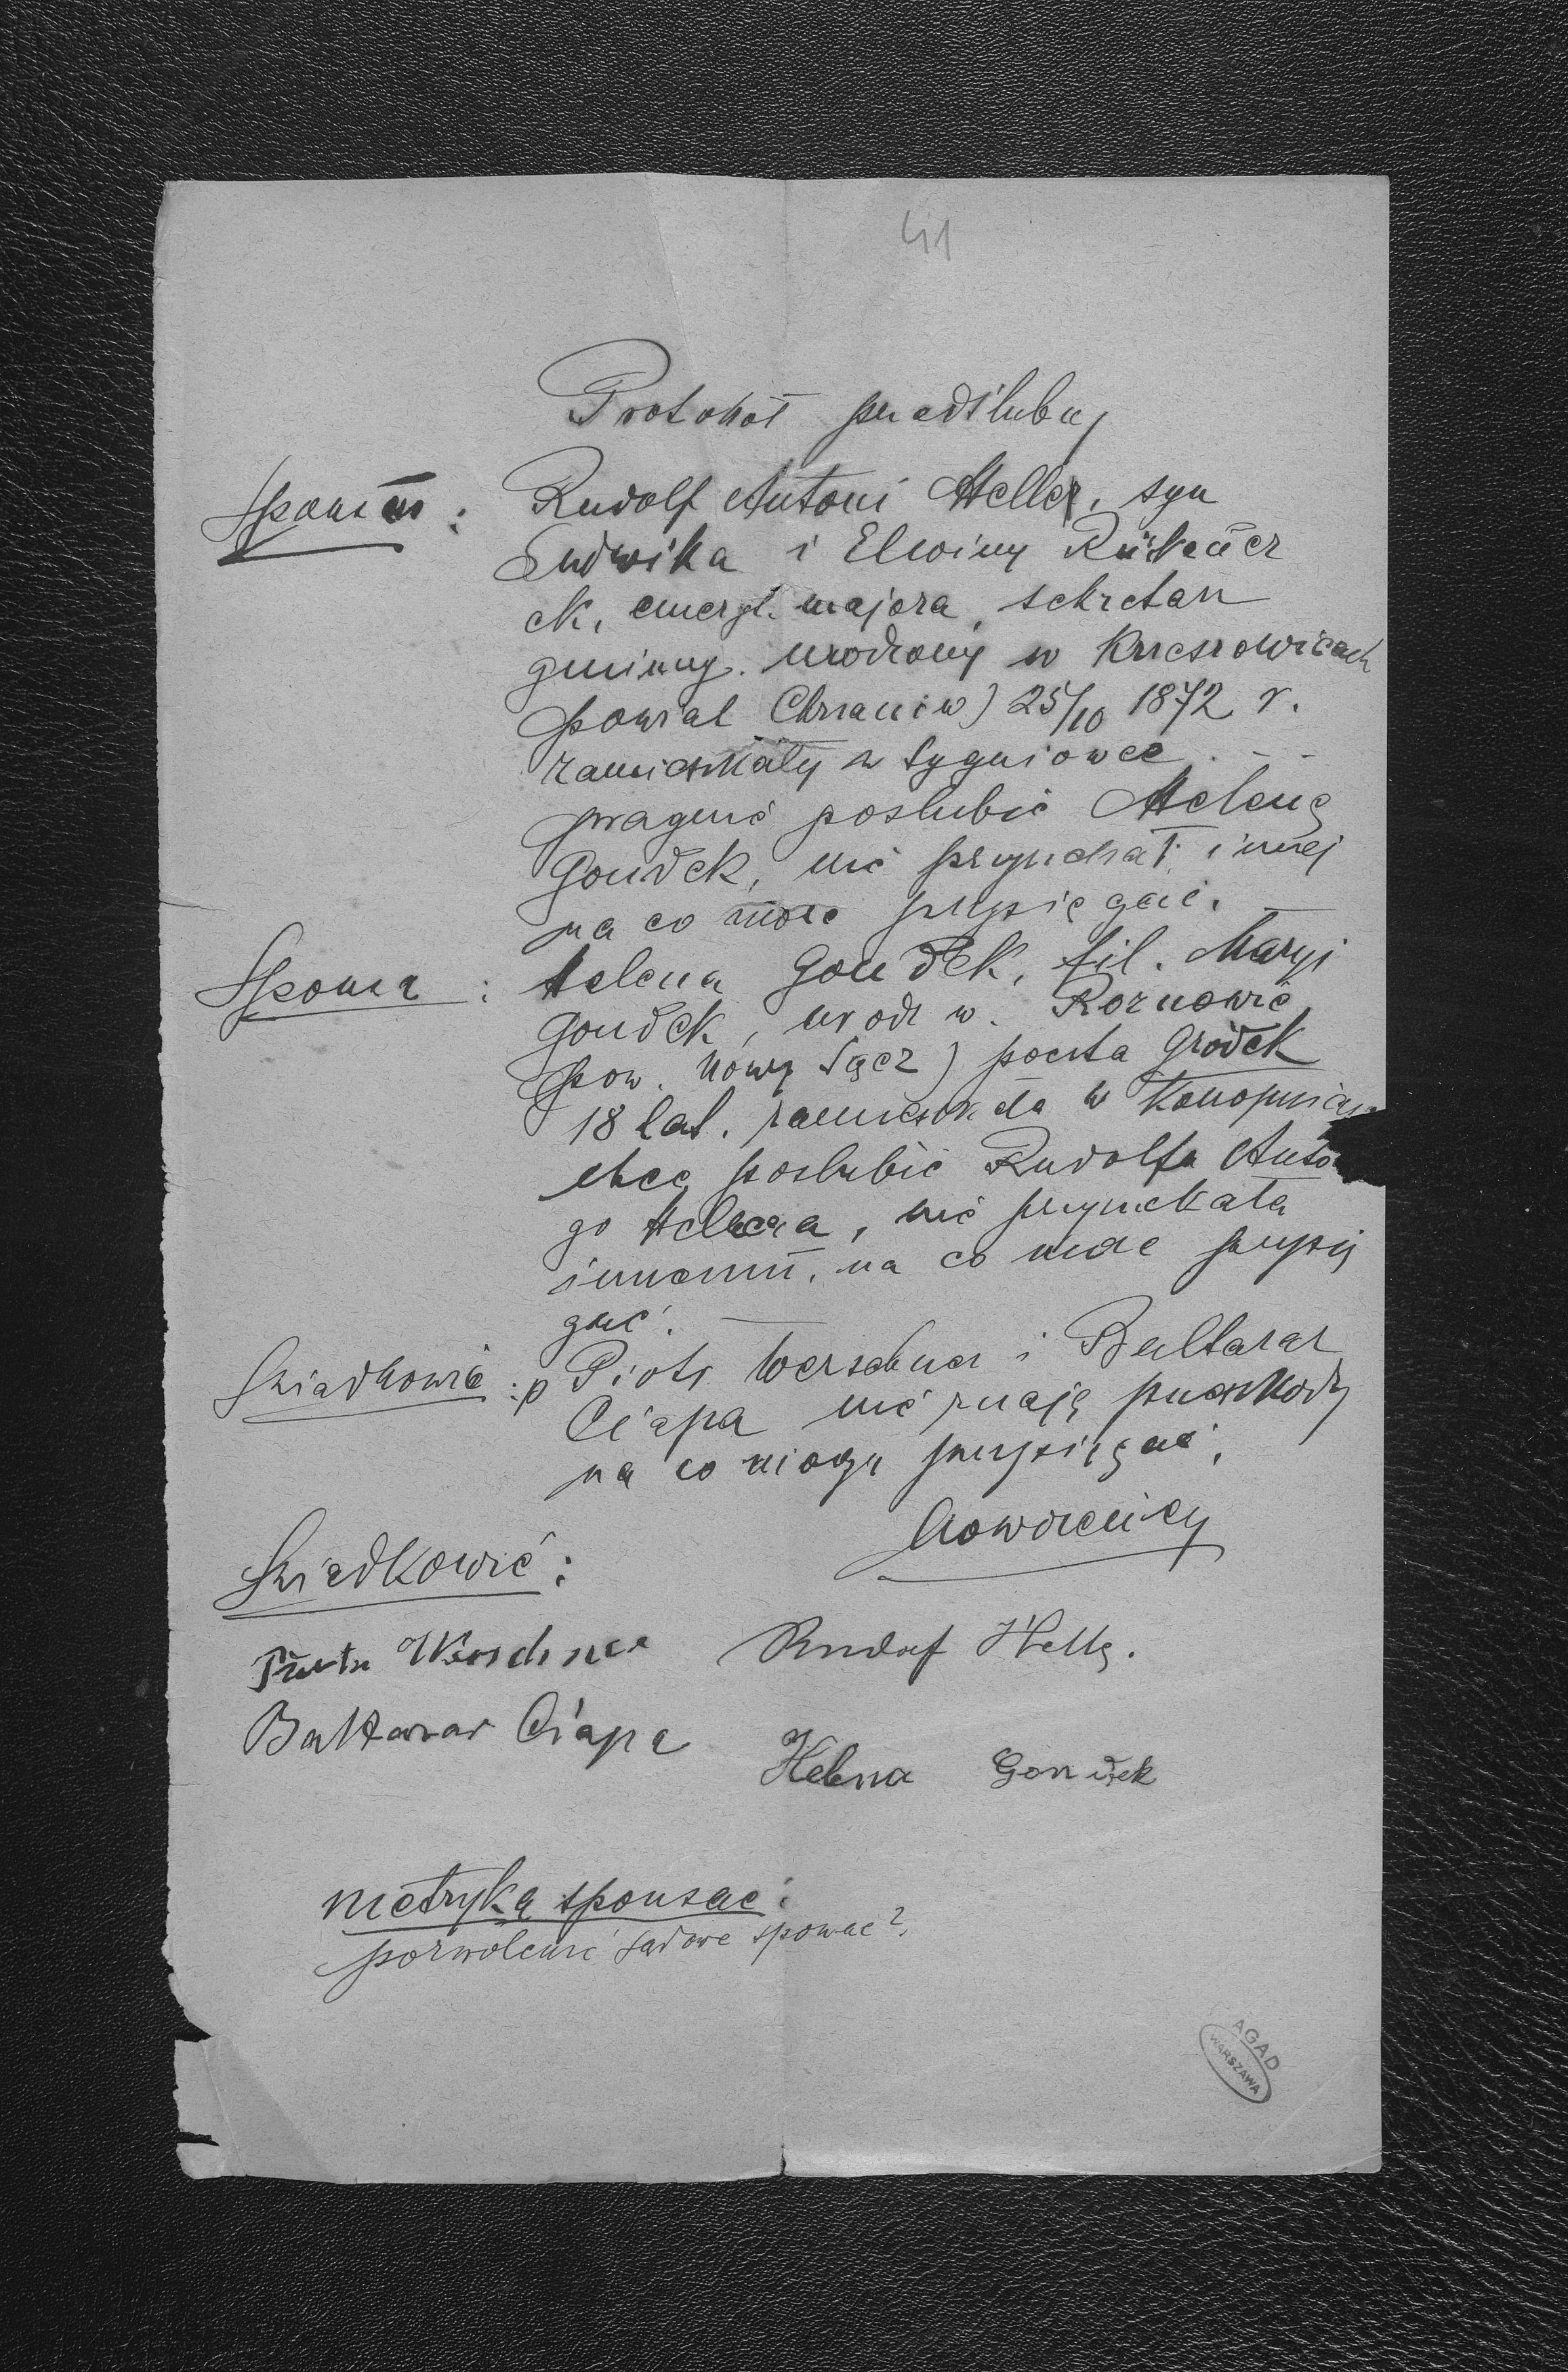 41
Protokół przedślubny
Sponsus: Rudolf Antoni Heller, syn
Ludwika i Elwiny
ck. emeryt. majora, sekretarz
gminny. urodzony w Krzeszowicach
powiat Chrzanów) 25/10 1872 r.
zamieszkały w Sygniowce
pragnie poslubić Helenę
Gondek, nie przyrzekał innej
na co może przysięgać.
Sponsa: Helena Gondek, fil. Maryi
Gondek, urodz w. Rożnowie
pow. Nowy Sącz) poczta Gródek
18 lat. zamieszkała w
chce poslubić Rudolfa Anto
go Hellera, nie przyrzekała
innemu, na co może przysię
gać.
Swiadkowie: Piotr Werschner i Baltazar
Ciapa nie znają przeszkody
na co mogą przysięgać,
Nowożeńcy
Swiadkowie:
Rudolf Heller.
Baltazar Ciapa
Helena Gondek
metryka sponsae:
pozwolenie sądowe sponsae?
AGAD
WARSZAWA